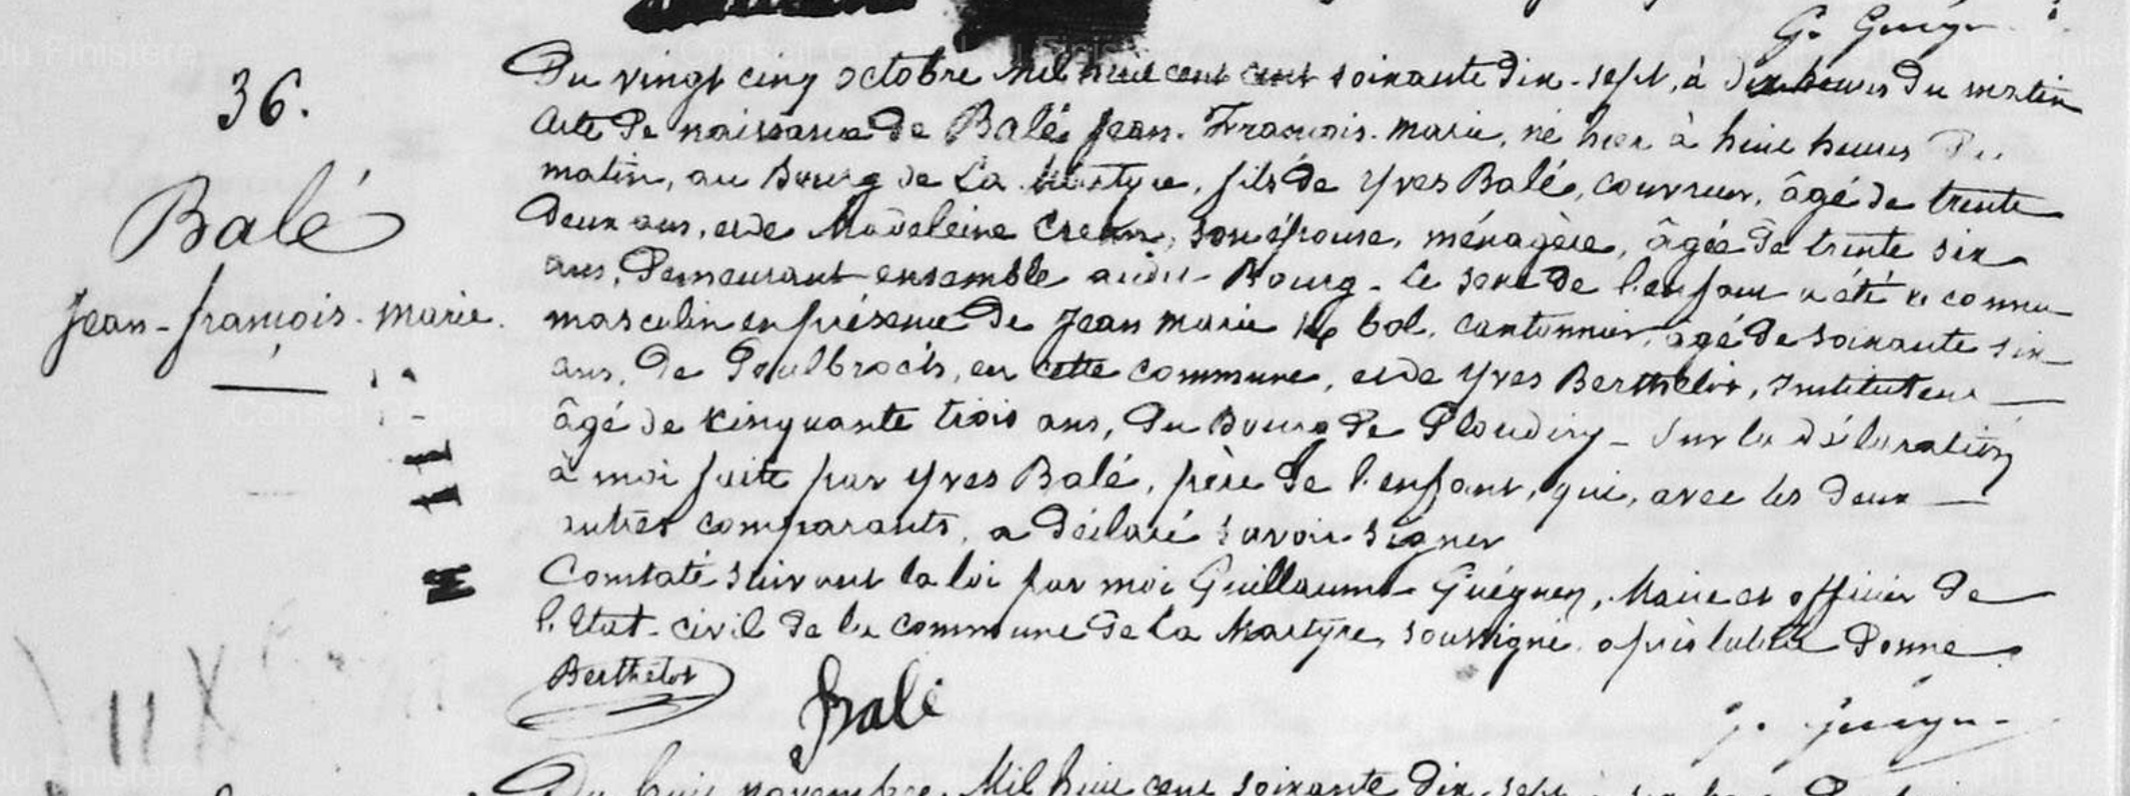 G. Guégu
36.
Balé
Jean-françois-marie.
Du vingt cinq octobre mil huit cent cent soixante dix-sept, à dix heures du matin
Acte de naissance de Balé Jean-François-marie, né hier à huit heures Du
matin, au Bourg de La Martyre, fils de Yves Balé, couvreur, âgé de trente
Deux ans, et de Madeleine Crenn, son épouse, ménagère, âgée de trente six
ans, Demeurant ensemble audit Bourg - Le sexe de l'enfant a été reconnu
masculin en présence de Jean marie bol, cantonnier, âgé de soixante six
ans, de en cette commune, et de Yves Berthelot, Instituteur
âgé de cinquante trois ans, du Bourg de Ploudiry - Sur la déclaration
à moi faite par Yves Balé, père de l'enfant, qui, avec les deux
autres comparants, a déclaré savoir signer
Constaté suivant la loi par moi Guillaume Guéguen, Maire et officier de
l'Etat-civil de la commune de La Martyre, soussigné, après lecture Donnée.
Berthelot
Balé
G. Guégu
Du huit novembre Mil huit cent soixante Dix sept
11 X
Conseil Général du Finistère